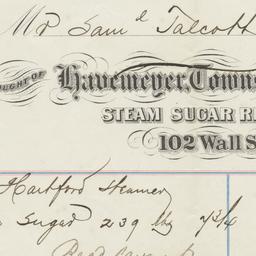 Mr Saml Talcott
OUGHT OF Havemeyer, Towns
STEAM SUGAR R
102 Wall S
Hartford Steamer
Sugar 239 lbs 7 3/4